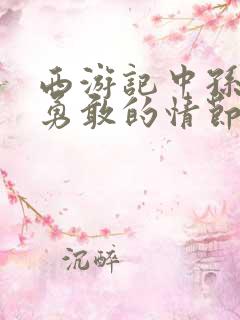 西游記中孫
勇敢的情節
沉醉